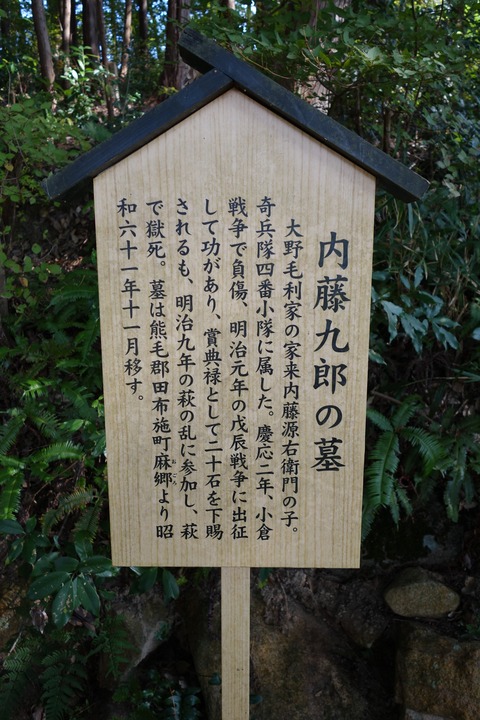 内藤九郎の墓
大野毛利家の家来内藤源右衛門の子。
奇兵隊四番小隊に属した。慶応二年、小倉
戦争で負傷、明治元年の戊辰戦争に出征
して功があり、賞典禄として二十石を下賜
されるも、明治九年の萩の乱に参加し、萩
で獄死。墓は熊毛郡田布施町麻郷より昭
おごう
和六十一年十一月移す。